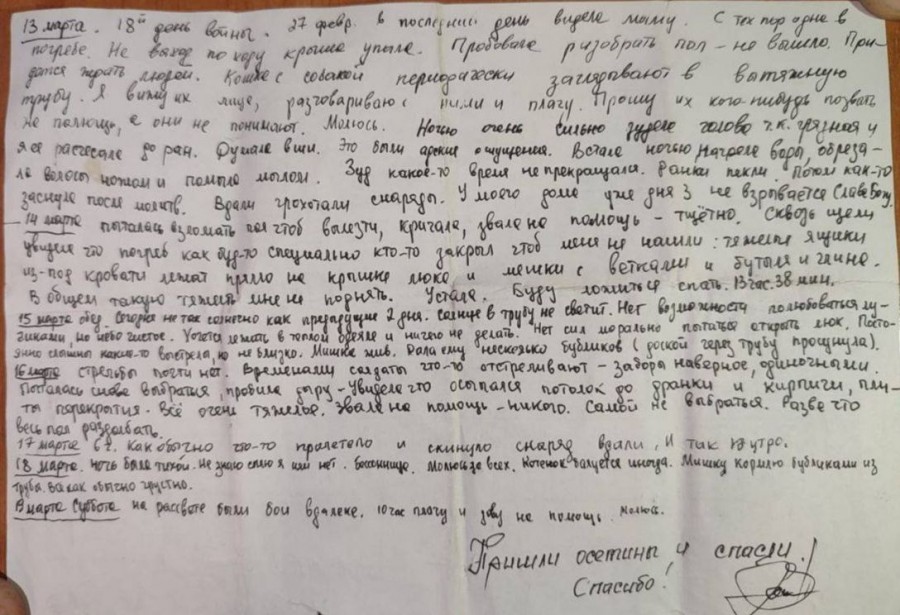 13 марта. 18й день войны. 27 февр. в последний день видела маму. С тех пор одна в
погребе. На выход по ходу крыша упала. Пробовала разобрать пол - не вышло. При-
дется ждать людей. Кошка с собакой периодически заглядывают в вытяжную
трубу. Я вижу их лица, разговариваю с ними и плачу. Прошу их кого-нибудь позвать
на помощь, а они не понимают. Молюсь. Ночью очень сильно зудела голова т.к. грязная и
я её расчесала до ран. Думала вши. Это были адские ощущения. Встала ночью нагрела воды, обреза-
ла волосы ножом и помыла мылом. Зуд какое-то время не прекращали. Ранки пекли. Потом как-то
заснула после молитв. Вдали грохотали снаряды. У моего дома уже дня 3 не взрывается Слава Богу.
14 марта пыталась взломать пол чтоб вылезти, кричала, звала на помощь - тщётно. Сквозь щели
увидела что погреб как будто специально кто-то закрыл чтоб меня не нашли: тяжелые ящики
из-под кровати лежат прямо на крышке люка и мешки с ветками и бутыля и глина.
В общем такую тяжесть мне не поднять. Устала. Буду ложиться спать. 13 час. 38 мин.
15 марта обед. Сегодня не так солнечно как предыдущие 2 дня. Солнце в трубу не светит. Нет возможности полюбоваться лу-
чиками, но небо чистое. Хочется лежать в теплом одеяле и ничего не делать. Нет сил морально пытаться открыть люк. Посто-
янно слышны какие-то выстрелы, но не близко. Мишка жив. Дала ему несколько бубликов (доской через трубу просунула).
16 марта стрельбы почти нет. Временами солдаты что-то отстреливают - заборы наверное, одиночными.
Пыталась снова выбраться, пробила дыру - увидела что осыпался потолок до дранки и кирпичи, пли-
ты перекрытия. Всё очень тяжелое. Звала на помощь - никого. Самой не выбраться. Разве что
весь пол раздолбать.
17 марта 6 ч. Как обычно что-то пролетело и скинуло снаряд вдали. И так до утра.
18 марта. Ночь была тихой. Не знаю сплю я или нет. Бессонница. Молюсь за всех. Котенок балуется иногда. Мишку кормлю бубликами из
трубы. как обычно грустно.
19 марта Суббота на рассвете были бои вдалеке. 10 час плачу и зову на помощь. Молюсь.
Пришли осетины и спасли!
Спасибо!